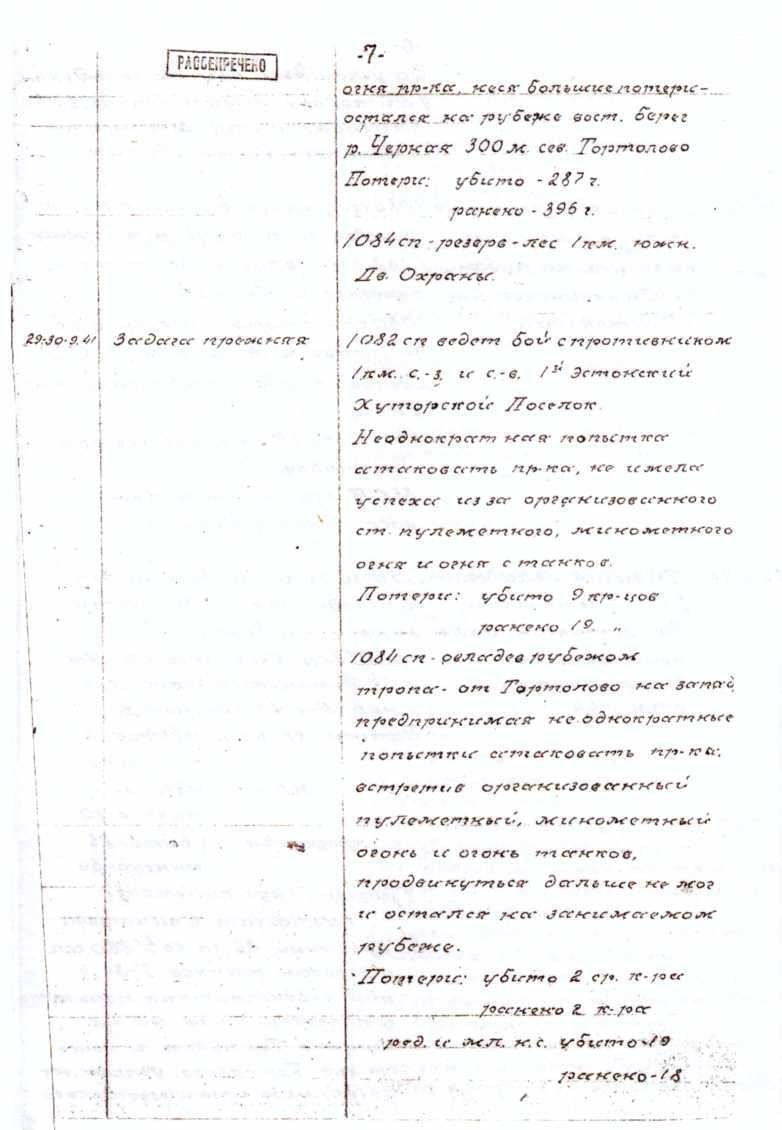 -7-
РАССЕКРЕЧЕНО
огня пр-ка, неся большие потери-
остался на рубеже вост. берег
р. Черная 300 м. сев. Тортолово
Потери: убито - 287 ч.
ранено - 396 ч.
1084 сп - резерв - лес 1 км. южн.
Дв. Охраны.
29-30-9.41 Задача прежняя
1082 сп ведет бой с противником
1 км. с.-з. и с.-в. 1ый Эстонский
Хуторской Поселок.
Неоднократная попытка
атаковать пр-ка, не имела
успеха из за организованного
ст. пулеметного, минометного
огня и огня с танков.
Потери: убито 9 кр-цов
ранено 19 "
1084 сп - овладев рубежом
тропа - от Тортолово на запад,
предпринимая неоднократные
попытки атаковать пр-ка,
встретив организованный
пулеметный, минометный
огонь и огонь танков,
продвинуться дальше не мог
и остался на занимаемом
рубеже.
Потери: убито 2 ср. к-ра
ранено 2 к-ра
ряд. и мл. н.с. убито-19
ранено-18